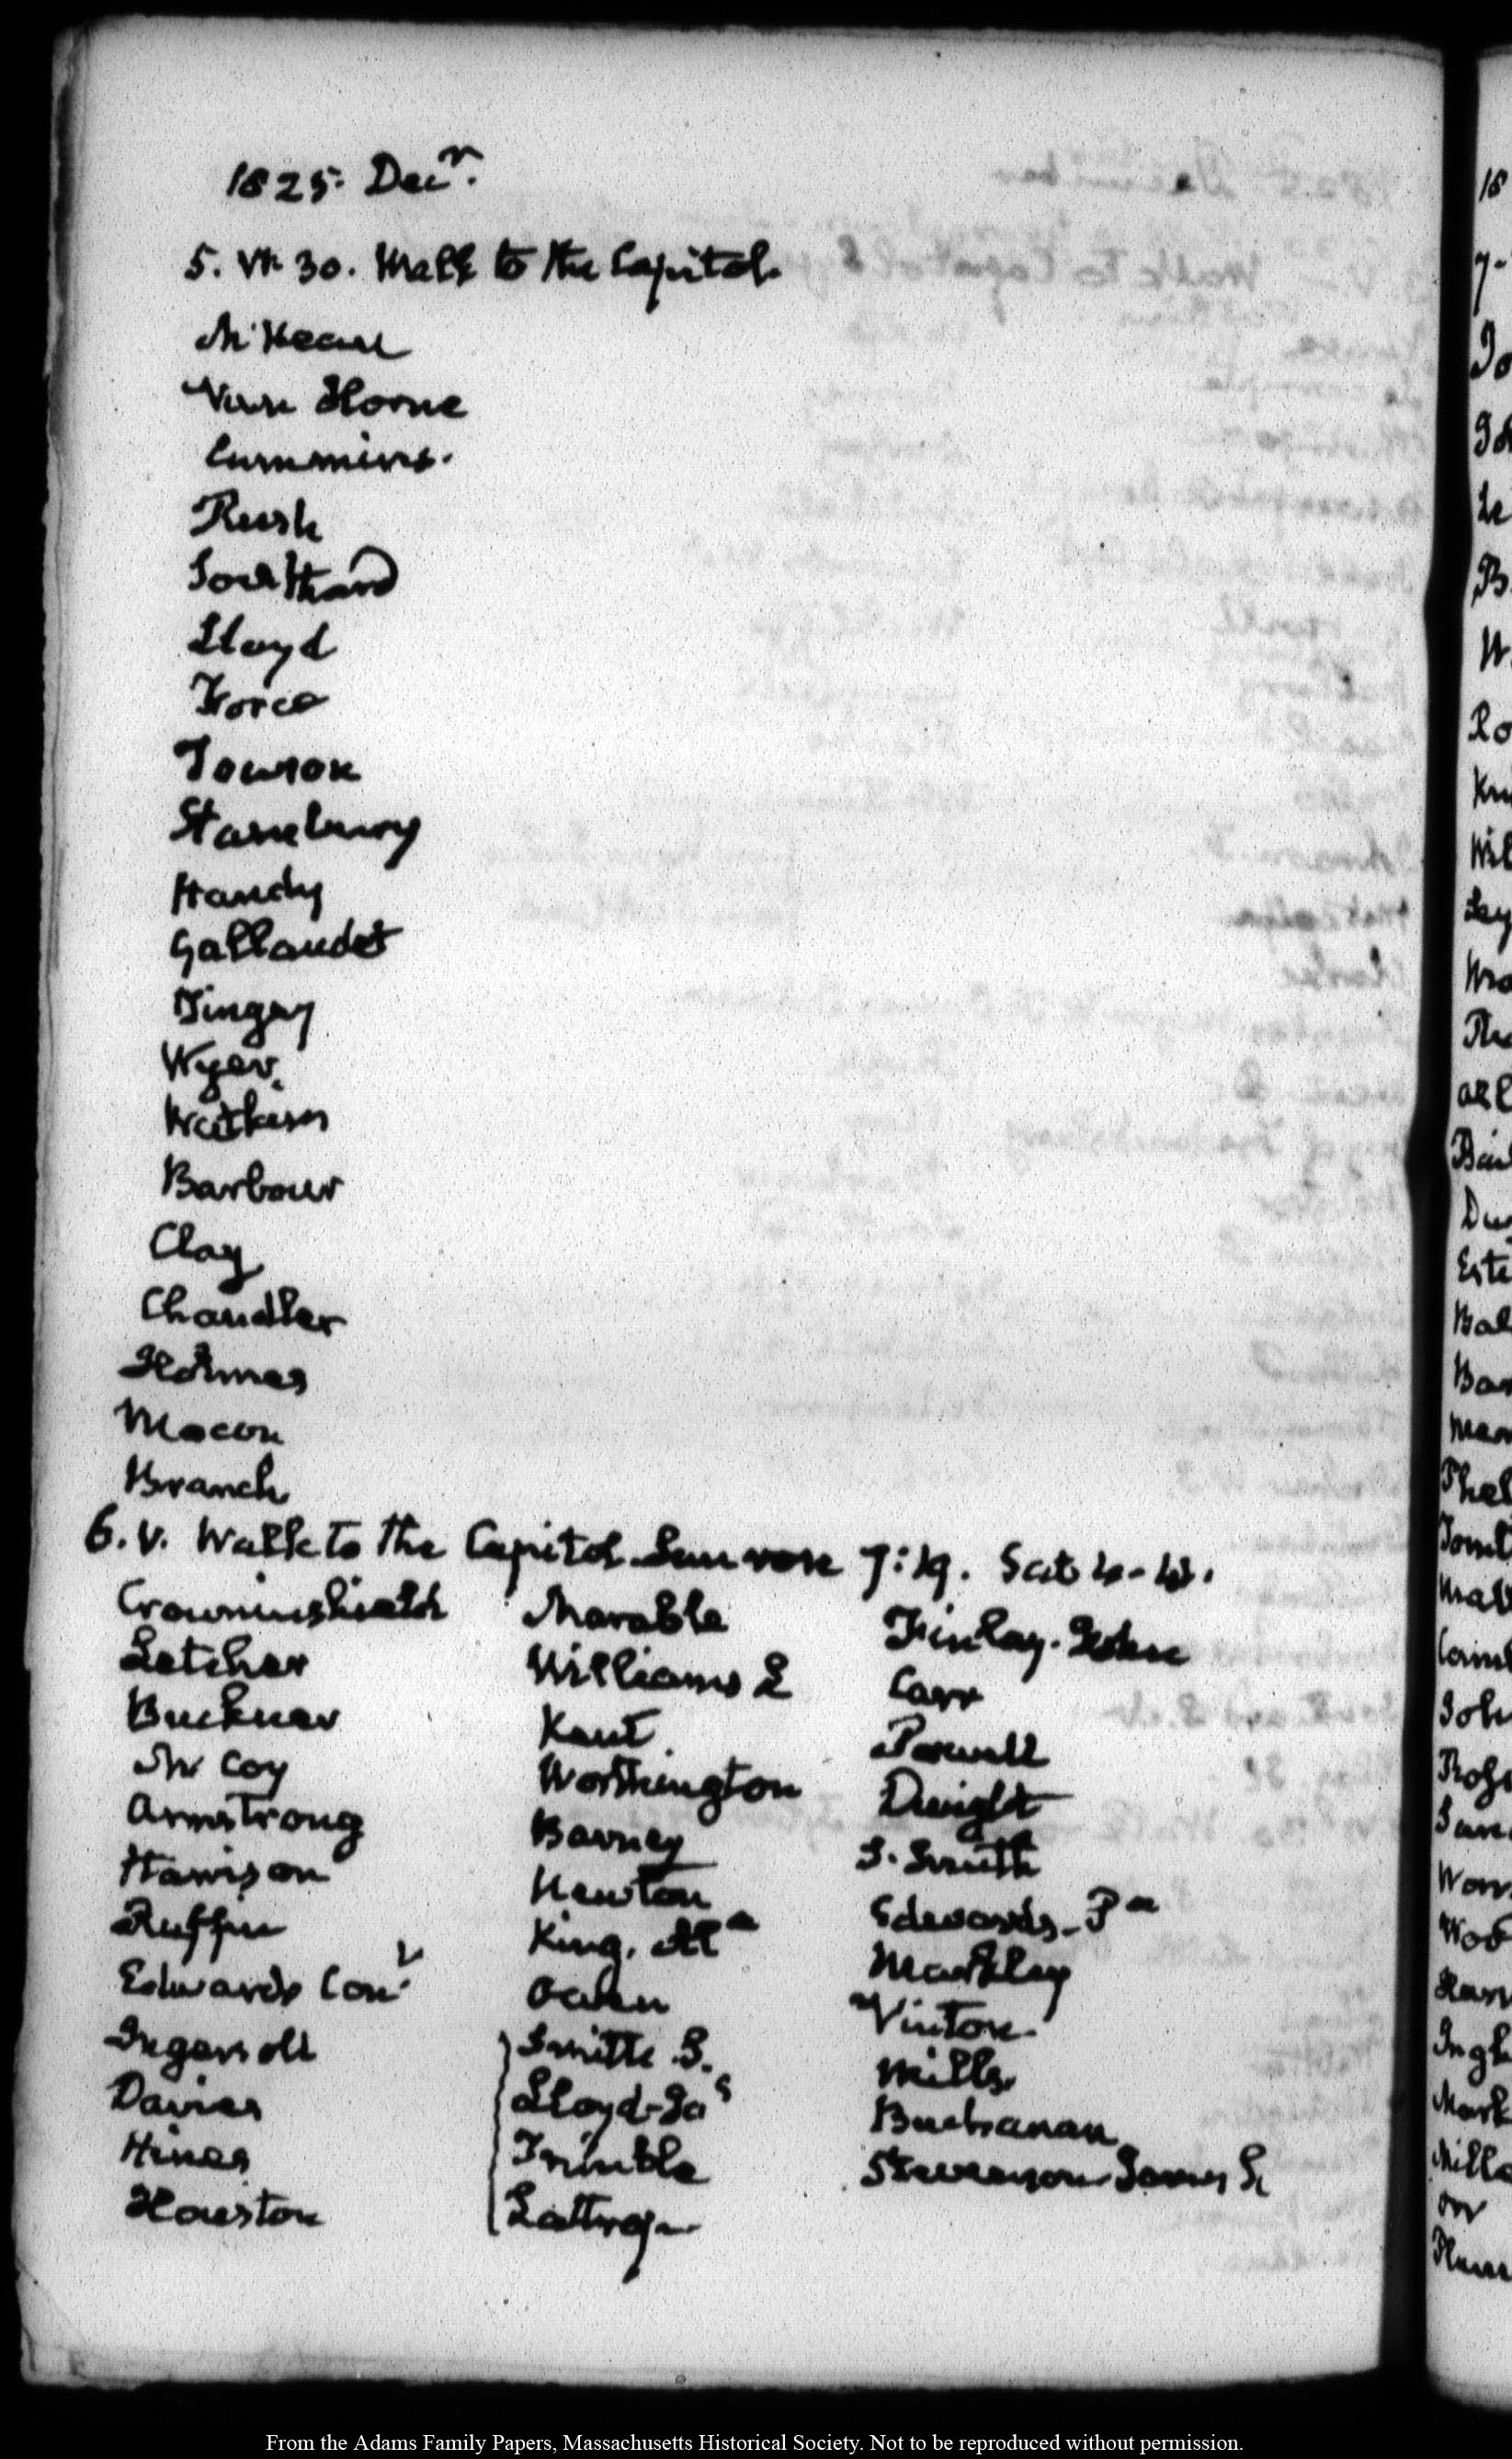 1825. Decr.
5. VI. 30. Walk to the Capitol.
McKean
Van Horne
Cummins.
Rush
Southard
Lloyd
Force
Towson
Stansbury
Handy
Gallaudet
Tingey
Wyer.
Watkins
Barbour
Clay
Chandler
Holmes
Macon
Branch
6. V. Walk to the Capitol. Sun rose 7:19. Set 4-41.
Crowninshield
Letcher
Buckner
McCoy
Armstrong
Harrison
Ruffin
Edwards Cont
Ingersoll
Davies
Hines
Houston
Marable
Williams L
Kent
Worthington
Barney
Newton
King. Ala
Owen
Smith S.
Lloyd-Jas
Trimble
Lathrop
Findlay. John
Carr
Powell
Dwight
S. Smith
Edwards-Pa
Markley
Vinton.
Mills.
Buchanan
Stevenson James S.
From the Adams Family Papers, Massachusetts Historical Society. Not to be reproduced without permission.